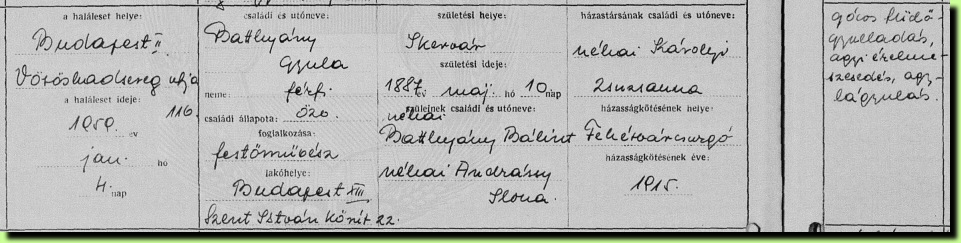 a haláleset helye:
Budapest II.
Vöröshadsereg útja
116.
a haláleset ideje:
1959. év
jan. hó
4. nap
családi és utóneve:
Batthyány
Gyula
neme: férfi
családi állapota: özv.
foglalkozása:
festőművész
lakóhelye:
Budapest XIII
Szent István körút 22.
születési helye:
Ikervár
születési ideje:
1887 év máj. hó 10 nap
szüleinek családi és utóneve:
néhai
Batthyány Bálint
néhai Andrássy
Ilona.
házastársának családi és utóneve:
néhai Károlyi
Zsuzsanna
házasságkötésének helye:
Fehérvárcsurgó
házasságkötésének éve:
1915.
gócos tüdő-
gyulladás,
agyi érelme-
szesedés, agy-
lágyulás.